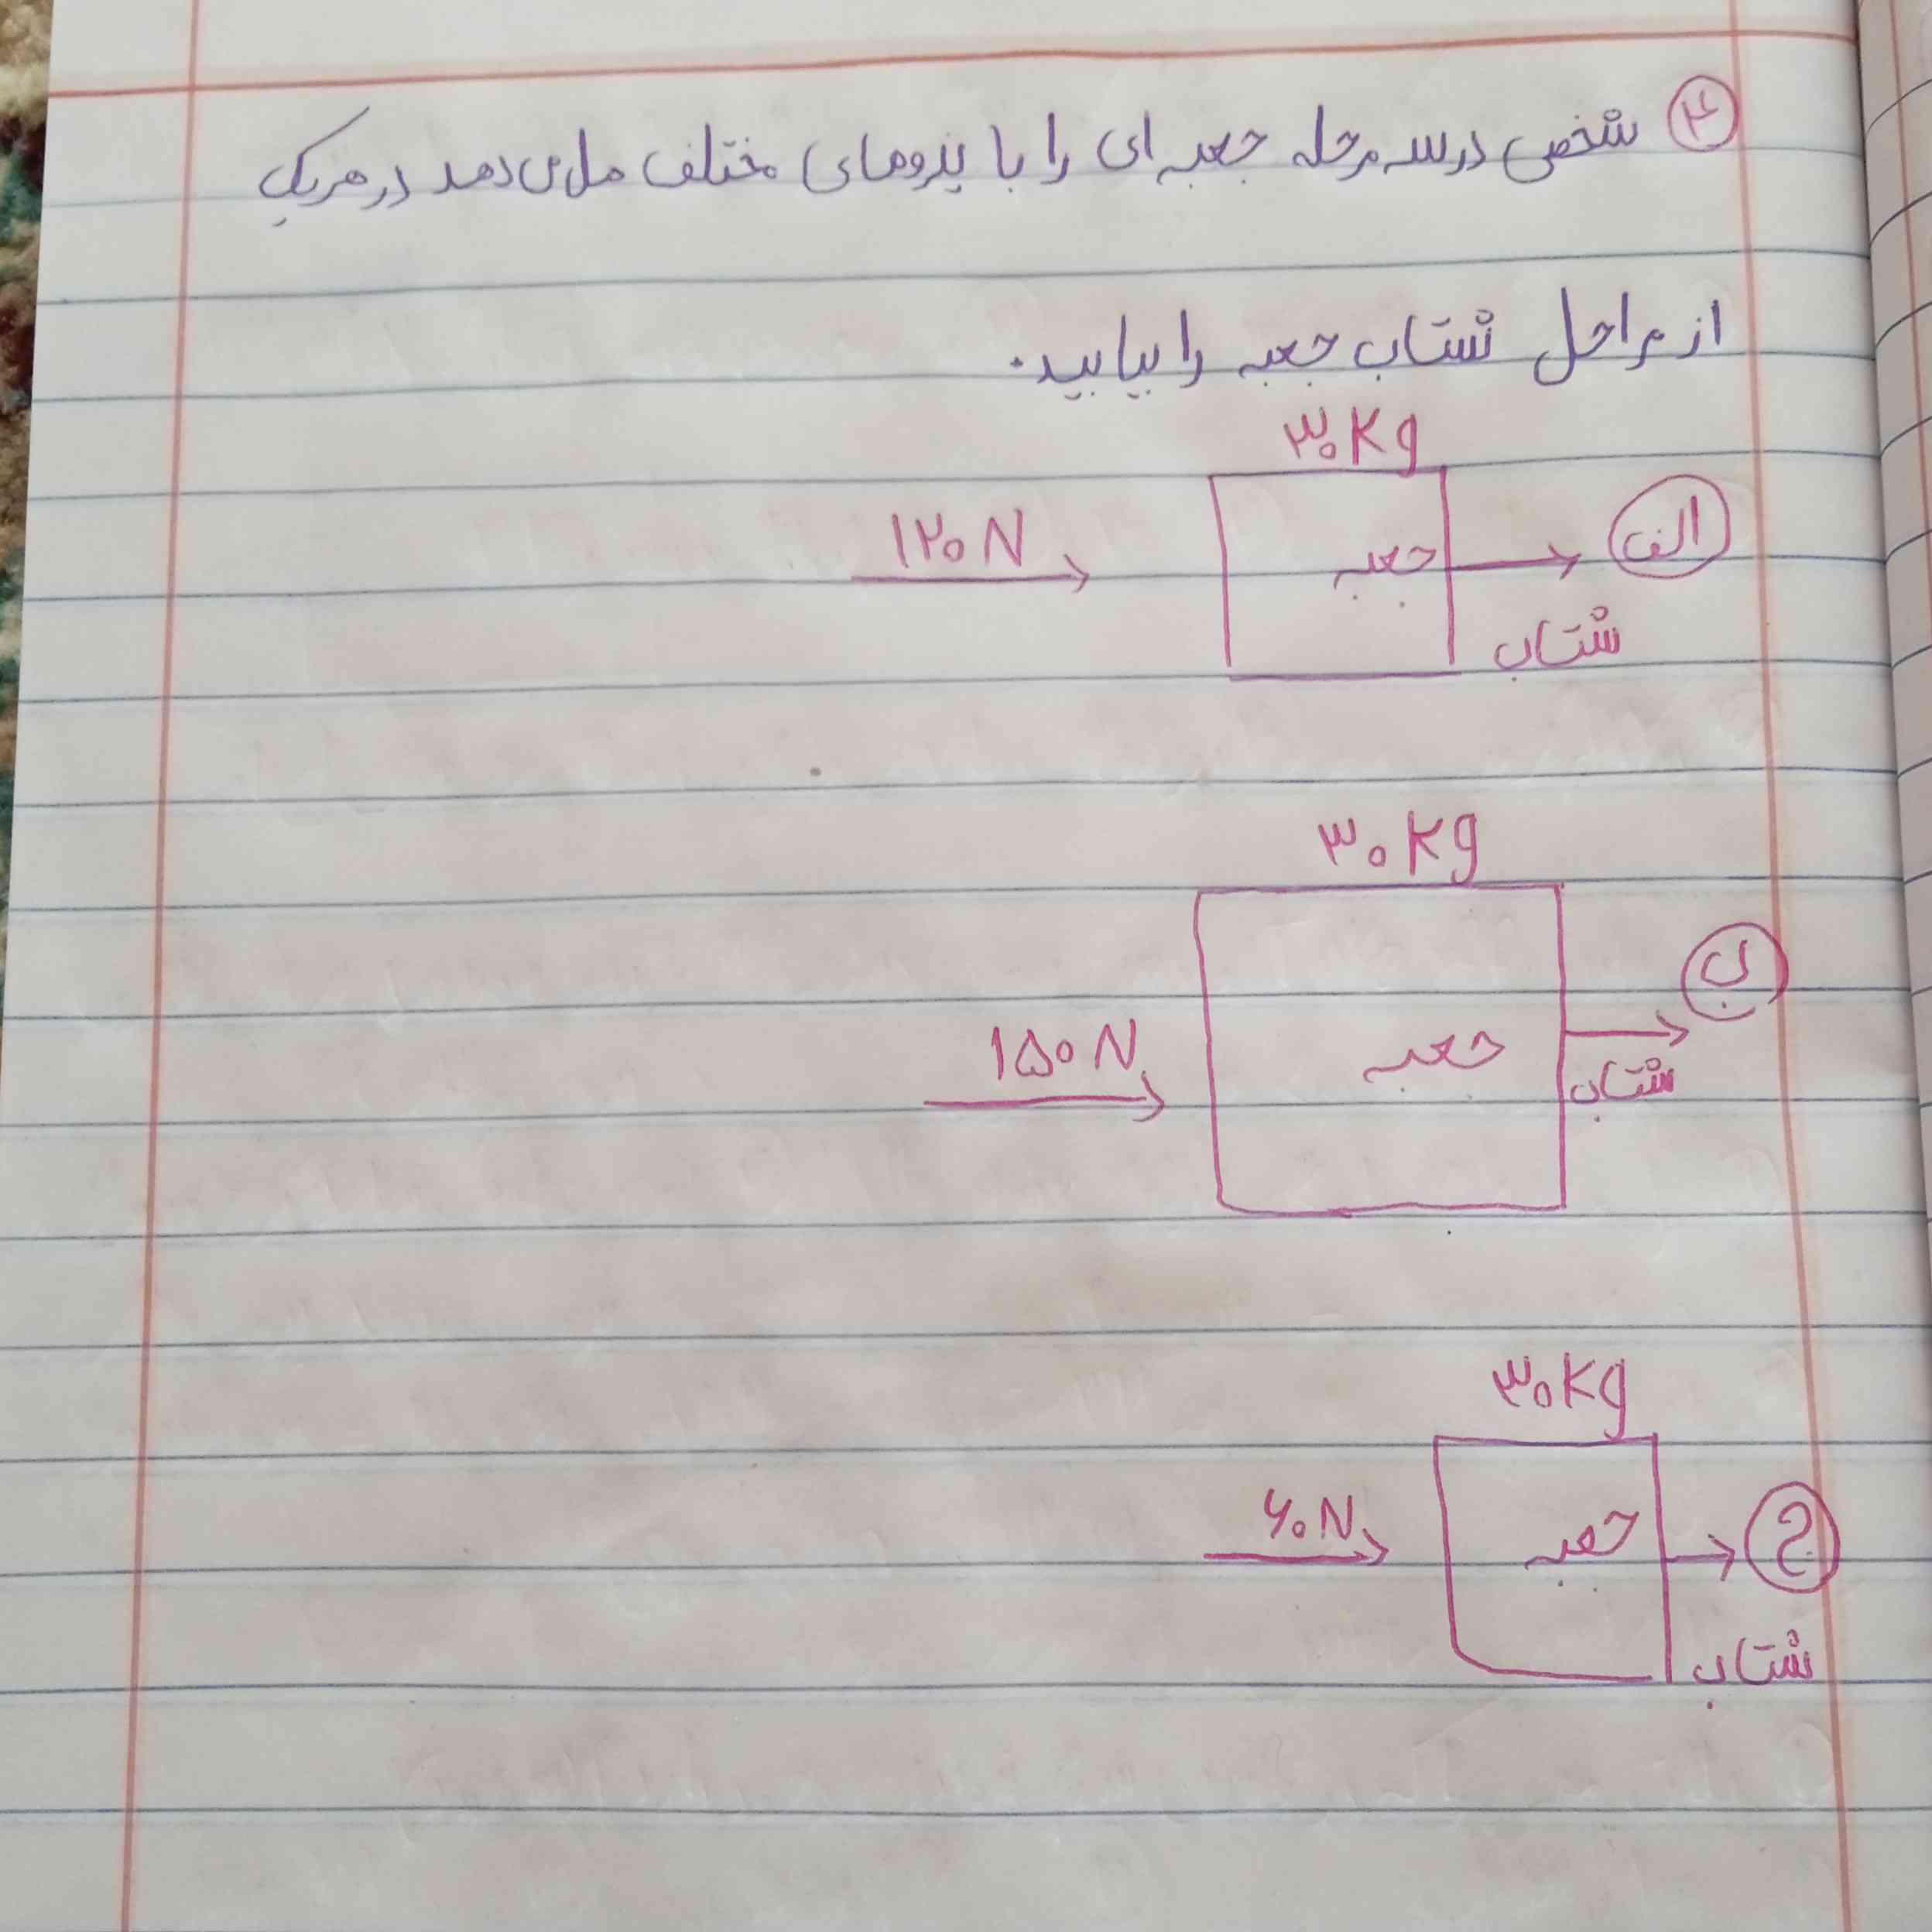 ۴ شخصی در سه مرحله جعبه ای را با نیروهای مختلف هل می دهد در هر یک
از مراحل شتاب جعبه را بیابید.
۳۰ Kg
۱۲۰ N جعبه الف
شتاب
۳۰ Kg
ب
۱۵۰ N جعبه شتاب
۳۰ Kg
۶۰ N جعبه ج
شتاب